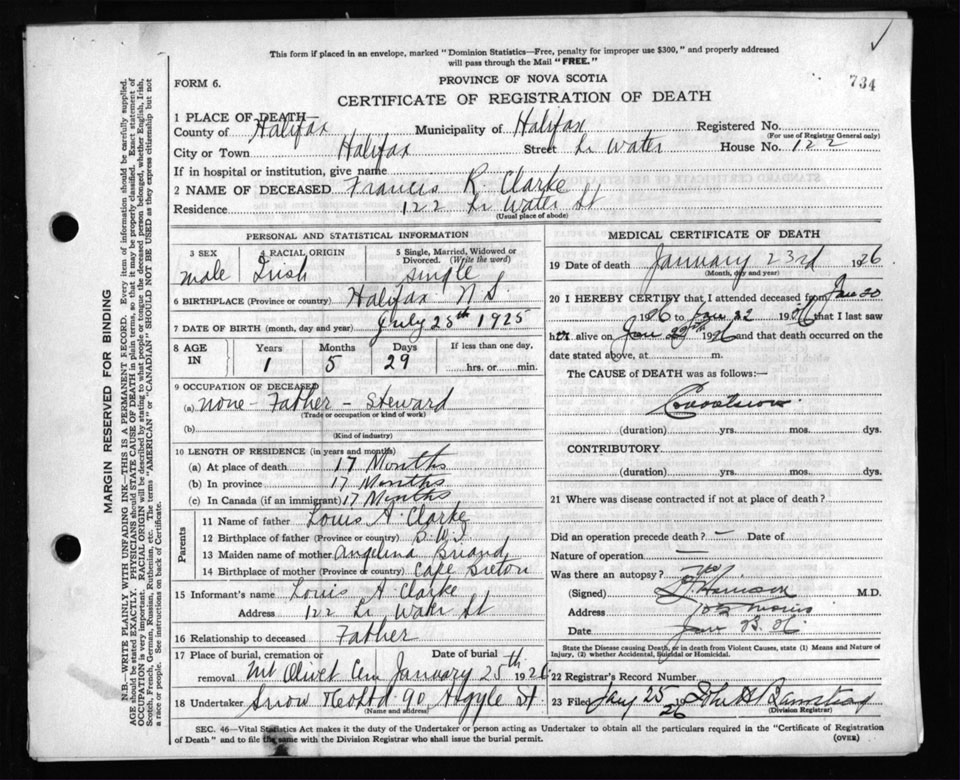 This form if placed in an envelope, marked "Dominion Statistics—Free, penalty for improper use $300," and properly addressed
will pass through the Mail "FREE."
FORM 6.
PROVINCE OF NOVA SCOTIA
734
CERTIFICATE OF REGISTRATION OF DEATH
1 PLACE OF DEATH
County of Halifax Municipality of Halifax Registered No.
(For use of Registrar General only)
City or Town Halifax Street Lr Water House No. 122
If in hospital or institution, give name
2 NAME OF DECEASED Francis R. Clarke
Residence 122 Lr Water St
(Usual place of abode)
PERSONAL AND STATISTICAL INFORMATION
3 SEX male
4 RACIAL ORIGIN Irish
5 Single, Married, Widowed or Divorced. (Write the word) single
6 BIRTHPLACE (Province or country) Halifax N.S.
7 DATE OF BIRTH (month, day and year) July 25th 1925
8 AGE IN
Years Months Days If less than one day.
1 5 29 hrs. or min.
9 OCCUPATION OF DECEASED
(a) none - Father - Steward
(Trade or occupation or kind of work)
(b)
(Kind of industry)
10 LENGTH OF RESIDENCE (in years and months)
(a) At place of death 17 Months
(b) In province 17 Months
(c) In Canada (if an immigrant) 17 Months
Parents
11 Name of father Louis A. Clarke
12 Birthplace of father (Province or country) B.W.I.
13 Maiden name of mother Angelina Briand
14 Birthplace of mother (Province or country) Cape Breton
15 Informant's name Louis A Clarke
Address 122 Lr Water St
16 Relationship to deceased Father
17 Place of burial, cremation or removal Mt Olivet Cem
Date of burial January 25th 1926
18 Undertaker Snow 90 Argyle St.
(Name and address)
MEDICAL CERTIFICATE OF DEATH
19 Date of death January 23rd 1926
(Month, day and year)
20 I HEREBY CERTIFY that I attended deceased from Jan 20
1926 to Jan 22 1926 that I last saw
h alive on Jan 1926 and that death occurred on the
date stated above, at m.
The CAUSE of DEATH was as follows:—
(duration) yrs. mos. dys.
CONTRIBUTORY
(duration) yrs. mos. dys.
21 Where was disease contracted if not at place of death?
Did an operation precede death? — Date of
Nature of operation —
Was there an autopsy? No
(Signed) M.D.
Address
Date Jan
State the Disease causing Death, or in death from Violent Causes, state (1) Means and Nature of
Injury, (2) whether Accidental, Suicidal or Homicidal.
22 Registrar's Record Number
23 Filed Jany 25 1926
(Division Registrar)
SEC. 46—Vital Statistics Act makes it the duty of the Undertaker or person acting as Undertaker to obtain all the particulars required in the "Certificate of Registration
of Death" and to file the same with the Division Registrar who shall issue the burial permit.
(OVER)
MARGIN RESERVED FOR BINDING
N.B.—WRITE PLAINLY WITH UNFADING INK—THIS IS A PERMANENT RECORD. Every item of information should be carefully supplied.
AGE should be stated EXACTLY. PHYSICIANS should STATE CAUSE OF DEATH in plain terms, so that it may be properly classified. Exact statement of
OCCUPATION is very important. RACIAL ORIGIN will be described by stating to what people or tongue the deceased person belonged, whether English, Irish,
Scotch, French, German, Russian, Ruthenian, etc. The terms "AMERICAN" or "CANADIAN" SHOULD NOT BE USED as they express citizenship but not
a race or people. See instructions on back of Certificate.